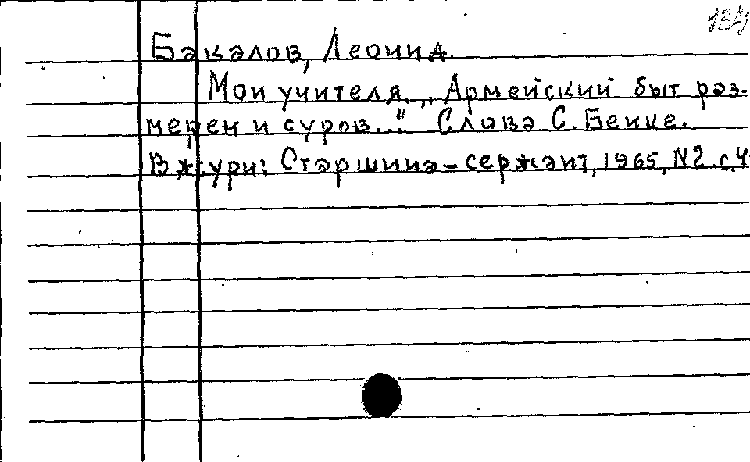 Бакалов, Леонид
Мои учителя. „Армейский быт раз-
мерен и суров..." Слова С. Бенке.
В журн: Старшина-сержант, 1965, №2 с.4